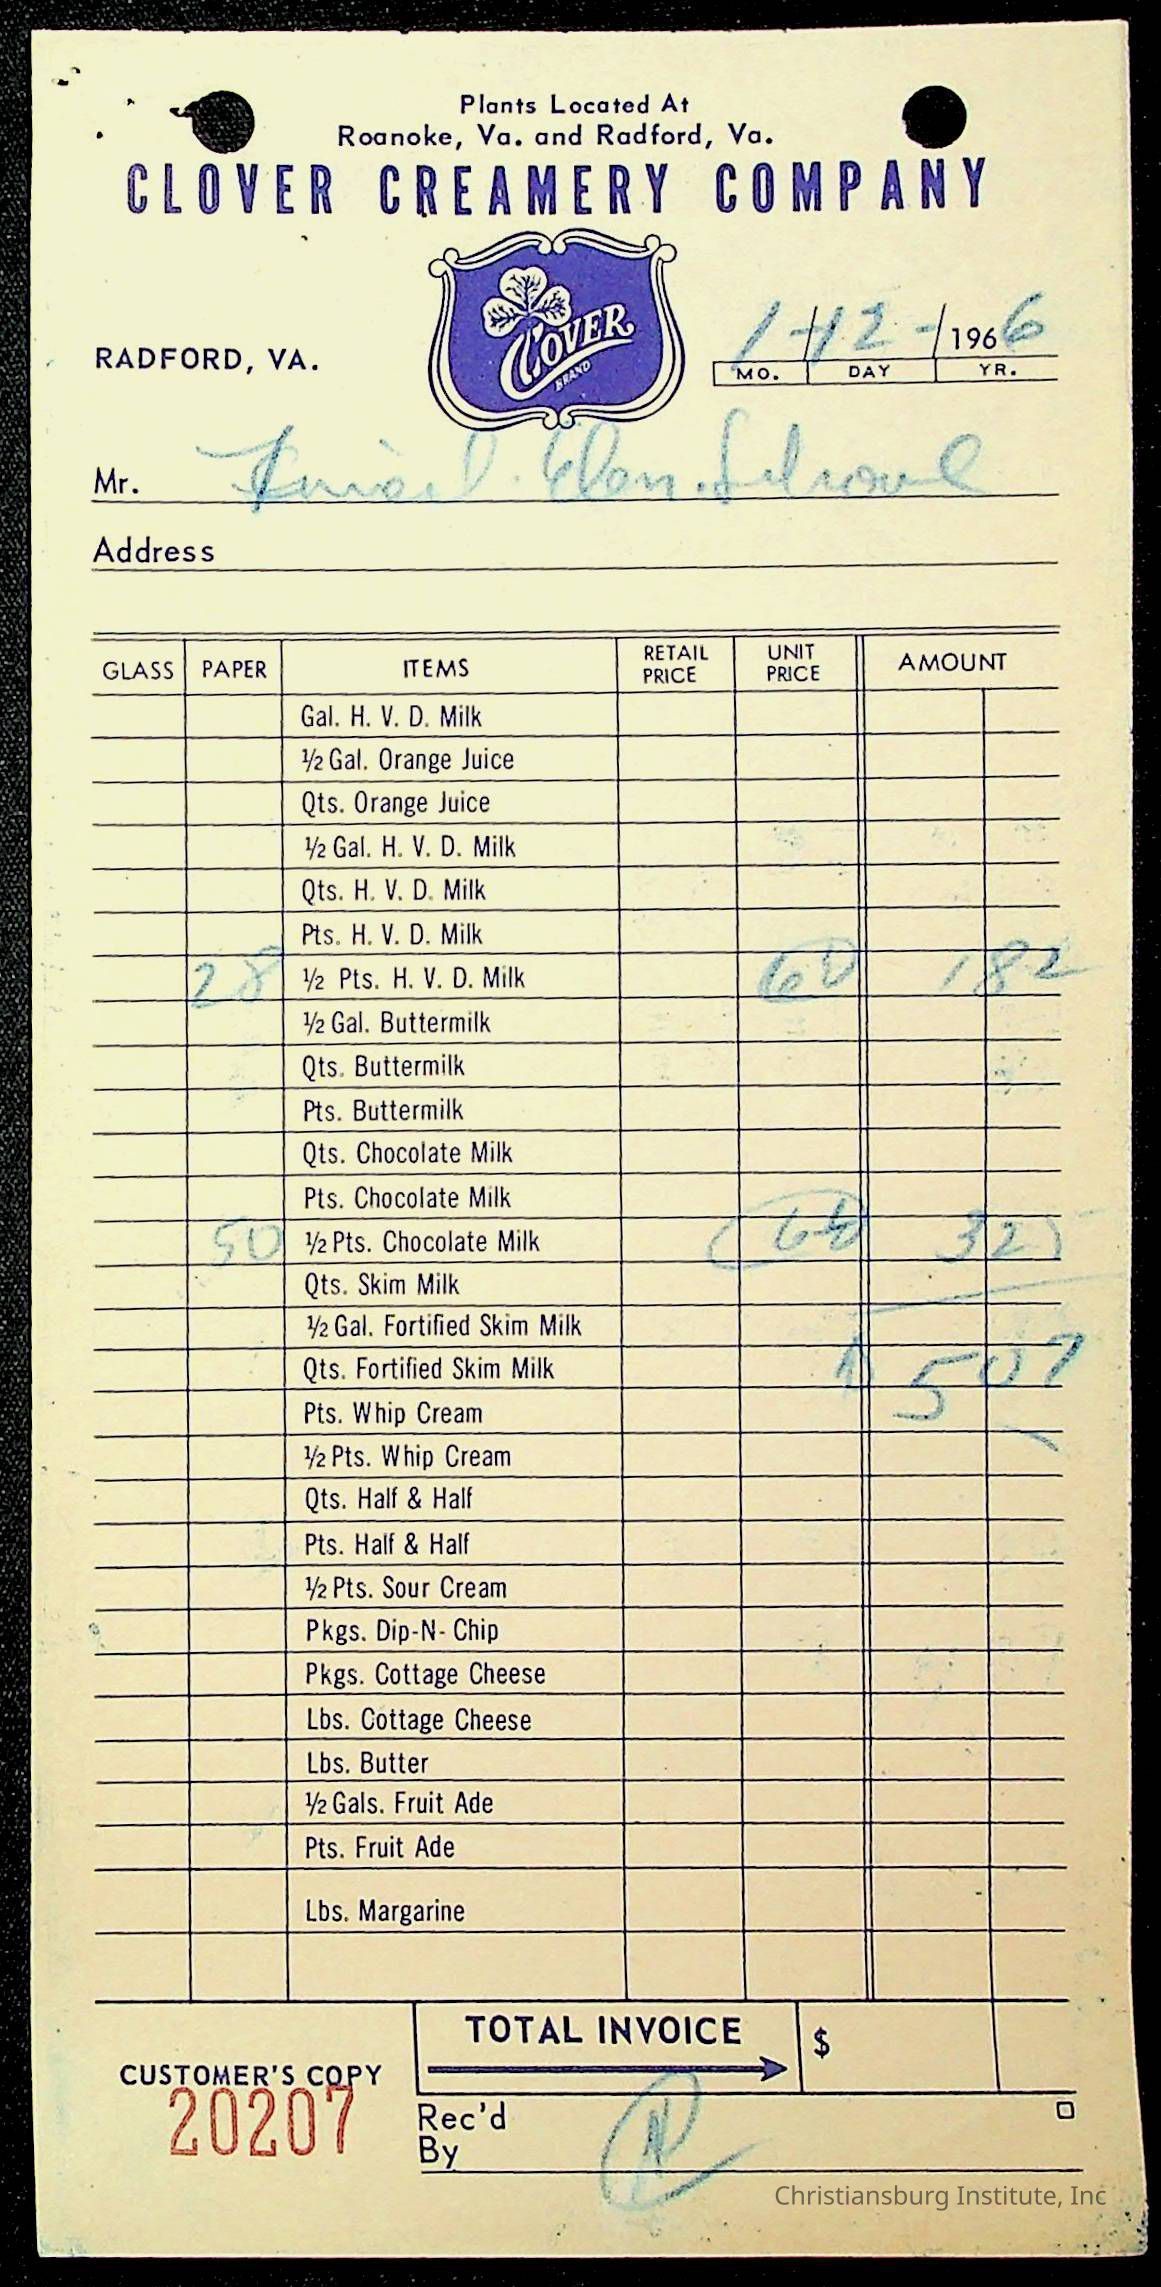 Plants Located At
Roanoke, Va. and Radford, Va.
CLOVER CREAMERY COMPANY
CLOVER
BRAND
RADFORD, VA.
1-12-1966
MO. DAY YR.
Mr. Elem. School
Address
GLASS PAPER ITEMS RETAIL PRICE UNIT PRICE AMOUNT
Gal. H. V. D. Milk
½ Gal. Orange Juice
Qts. Orange Juice
½ Gal. H. V. D. Milk
Qts. H. V. D. Milk
Pts. H. V. D. Milk
28 ½ Pts. H. V. D. Milk 182
½ Gal. Buttermilk
Qts. Buttermilk
Pts. Buttermilk
Qts. Chocolate Milk
Pts. Chocolate Milk
50 ½ Pts. Chocolate Milk 325
Qts. Skim Milk
½ Gal. Fortified Skim Milk
Qts. Fortified Skim Milk 507
Pts. Whip Cream
½ Pts. Whip Cream
Qts. Half & Half
Pts. Half & Half
½ Pts. Sour Cream
Pkgs. Dip-N-Chip
Pkgs. Cottage Cheese
Lbs. Cottage Cheese
Lbs. Butter
½ Gals. Fruit Ade
Pts. Fruit Ade
Lbs. Margarine
TOTAL INVOICE $
CUSTOMER'S COPY
20207
Rec'd
By
Christiansburg Institute, Inc